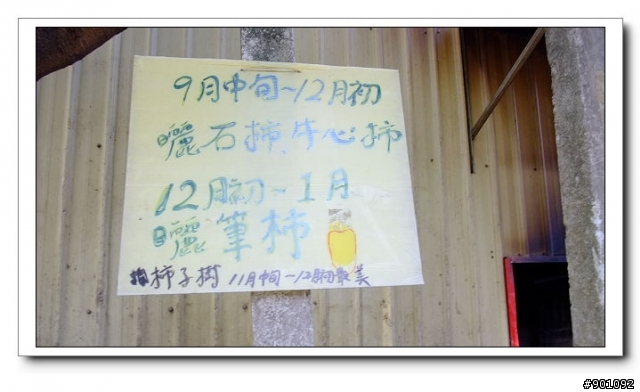 9月中旬~12月初
曬石柿.牛心柿
12月初~1月
曬筆柿
柿子樹 11月中旬~12月初最美
#901092